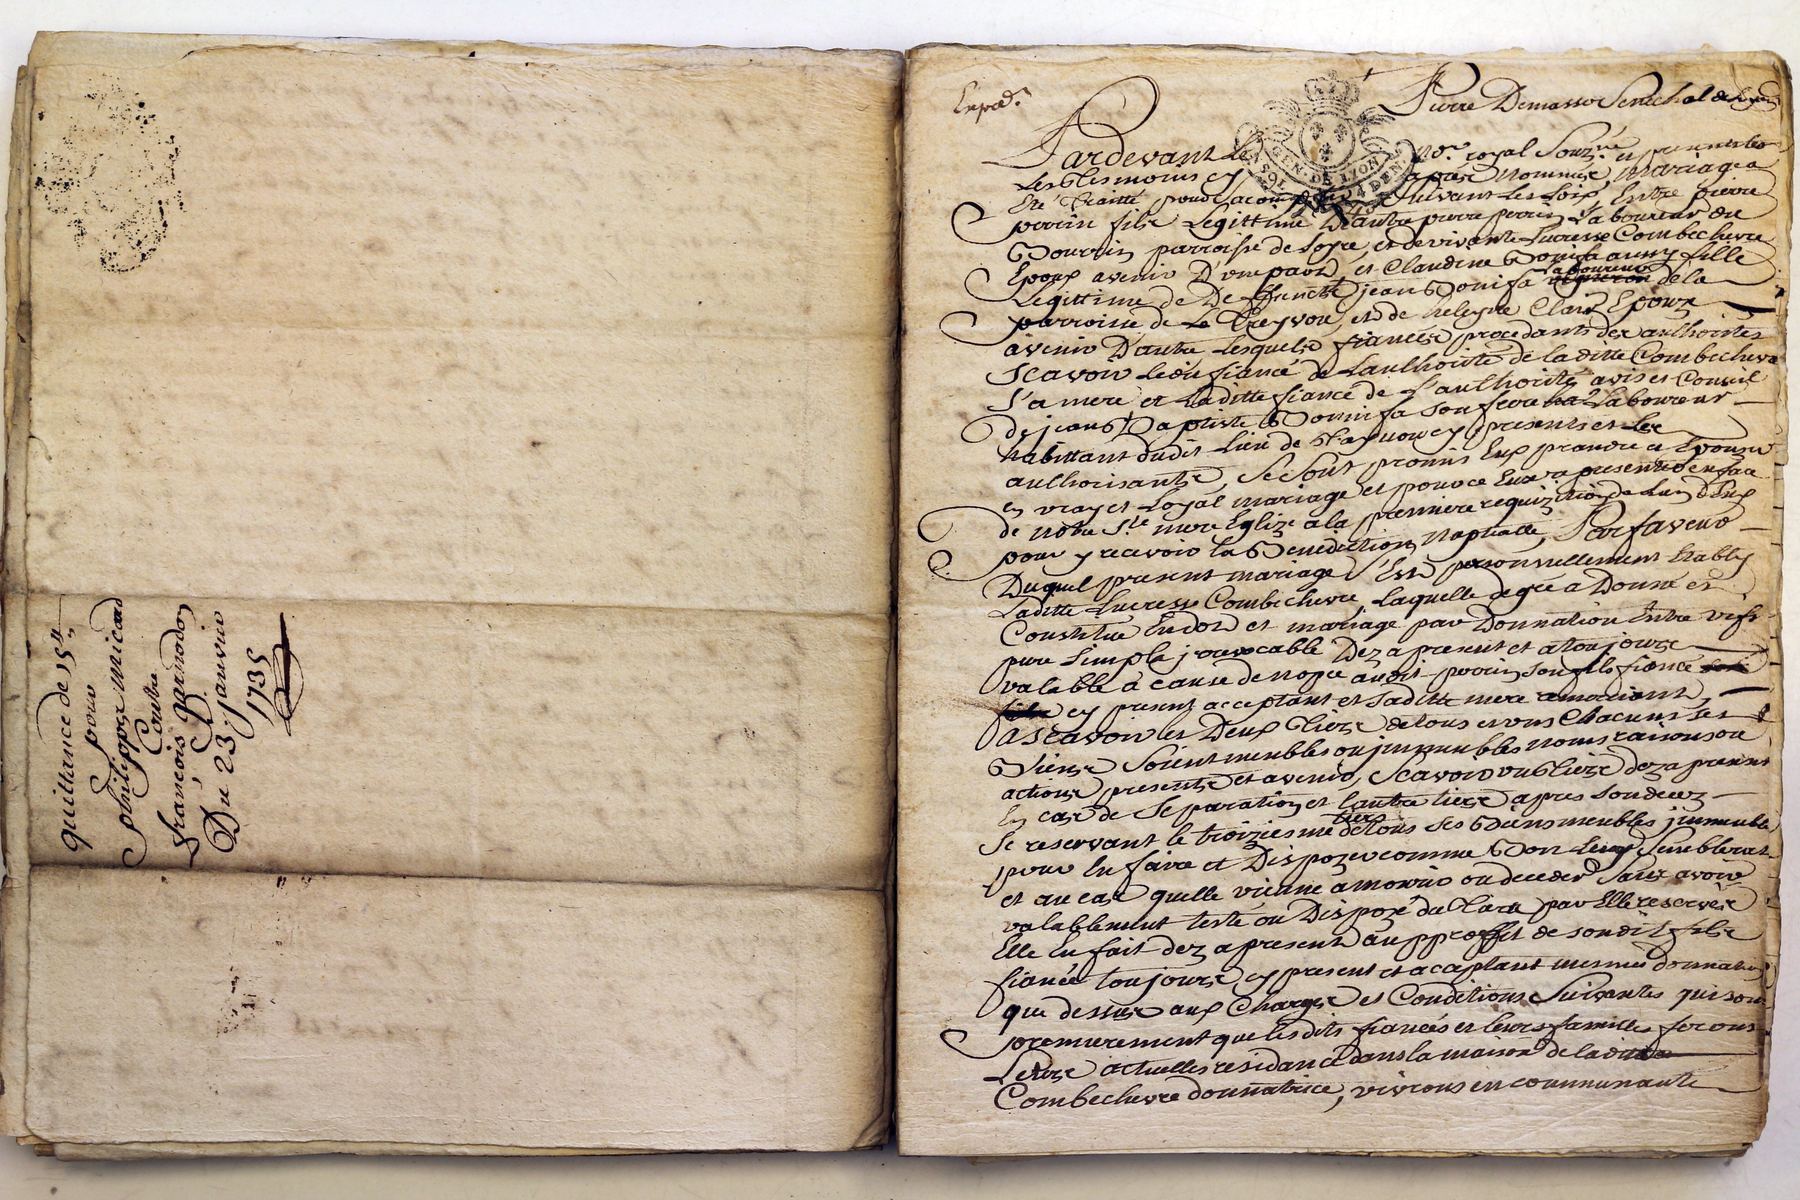 quittance de 15ᵗᵗ
pour
philippe micad
Contre
françois Barnodon
Du 23 janvier
1735
Exped.
Pierre Demasso Senechal de Lyon
GEN. DE LYON
SOL 4 DEN.
Pardevant Le no.re royal Souz.ne et presents
Les tesmoins cy apres nommés mariage a
Eté traitté pour sacomplir suivant Les Loix, Entre pierre
perrin fils Legittime D'autre pierre perrin Laboureur du
parroisse de et de vivante Lucresse Combechevre
Epoux avenir D'une part, et Claudine Bonifa aussy fille
Laboureur
Legittime de Deffunct jean Bonifa vigneron de la
parroisse de et de heleyne Clair Epouze
avenir D'autre Lesquels fiancés procedants des authorités
Scavoir Ledit fiancé de Lauthorité de laditte Combechevre
Sa mere et Laditte fiancé de L'authorité avis et Conseil
de jean Baptiste Bonifa son frere Laboureur
habittant dudit Lieu de cy presents et Les
authorisants, Se sont promis Eux prandre et Epouzer
en vray et Loyal mariage et pour ce Eux presenter en face
de notre S.te mere Eglize a la premiere requizition de Lun d'Eux
pour y recevoir la Benediction nuptialle, En faveur
Duquel present mariage s'Est personnellement Etably
Laditte Lucresse Combechevre, Laquelle degré a Donné et
Constitue En dot et mariage par Donnation Entre vifs
pure simple jrrevocable Dez a present et a toujours
valable a cause de nopce audit perrin son fils fiancé
cy present acceptant et saditte mere remerciant,
A Scavoir les Deux tiers de tous et uns Chacuns ses
Biens Soient meubles ou jmmeubles noms raisons ou
actions presents et avenir, Scavoir un tiers dez a present
En cas de Separation et Lautre tiers apres son decez
tiers
Se reservant le troiziesme de tous ses Biens meubles jmmeubles
pour En faire et Dispozer comme Bon Luy Semblera
et au cas quelle vienne a mourir ou deceder Sans avoir
valablement testé ou Dispozé du tiers par Elle reservé
Elle En fait dez a present au proffit de sondit fils
fiancé toujours cy present et acceptant mesmes donnation
que dessus aux Charges et Conditions Suivantes qui sont
premierement que lesdits fiancés et leurs familles feront
Leurs actuelles residance dans la maison de laditte
Combechevre donnatrice, vivrons en communauté